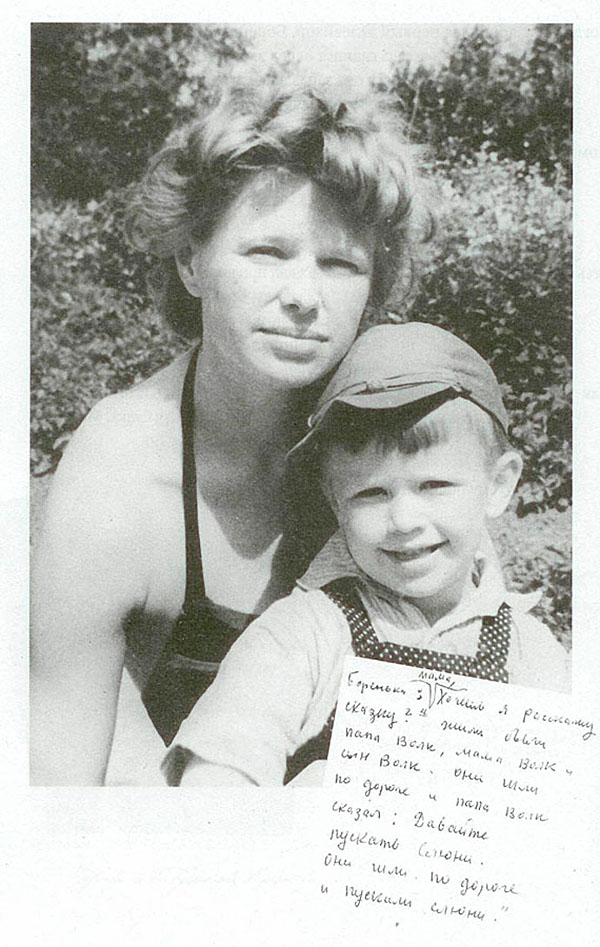 мама,
Боренька: Хочешь я расскажу
сказку? "Жили были
папа Волк, мама Волк и
сын Волк. Они шли
по дороге и папа Волк
сказал: Давайте
пускать слюни.
Они шли по дороге
и пускали слюни."